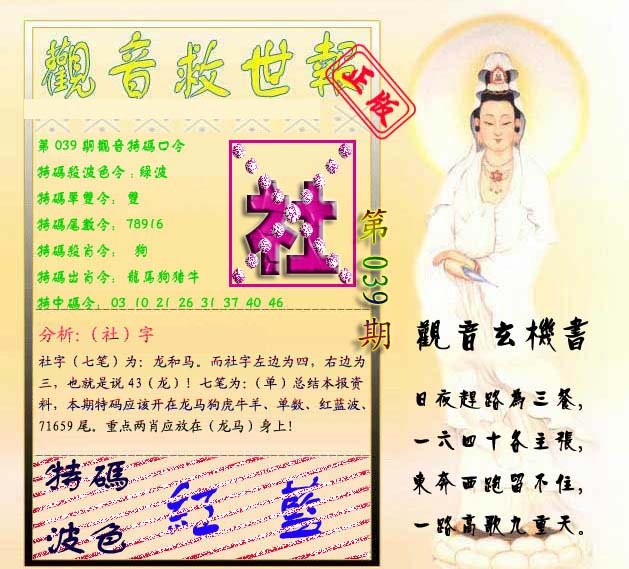 觀音救世報
正版
第039期觀音特碼口令
特碼殺波色令:綠波
特碼單雙令: 雙
特碼尾數令: 78916
特碼殺肖令: 狗
特碼出肖令: 龍馬狗猪牛
特中碼令: 03 10 21 26 31 37 40 46
社
第039期
分析:(社)字
社字(七笔)为:龙和马。而社字左边为四,右边为
三,也就是说 43(龙)!七笔为:(单)总结本报资
料,本期特码应该开在龙马狗虎牛羊、单数、红蓝波、
71659 尾。重点两肖应放在(龙马)身上!
特碼
波色
紅 藍
觀音玄機書
日夜趕路為三餐,
一六四十各主張,
東奔西跑留不住,
一路高歌九重天。